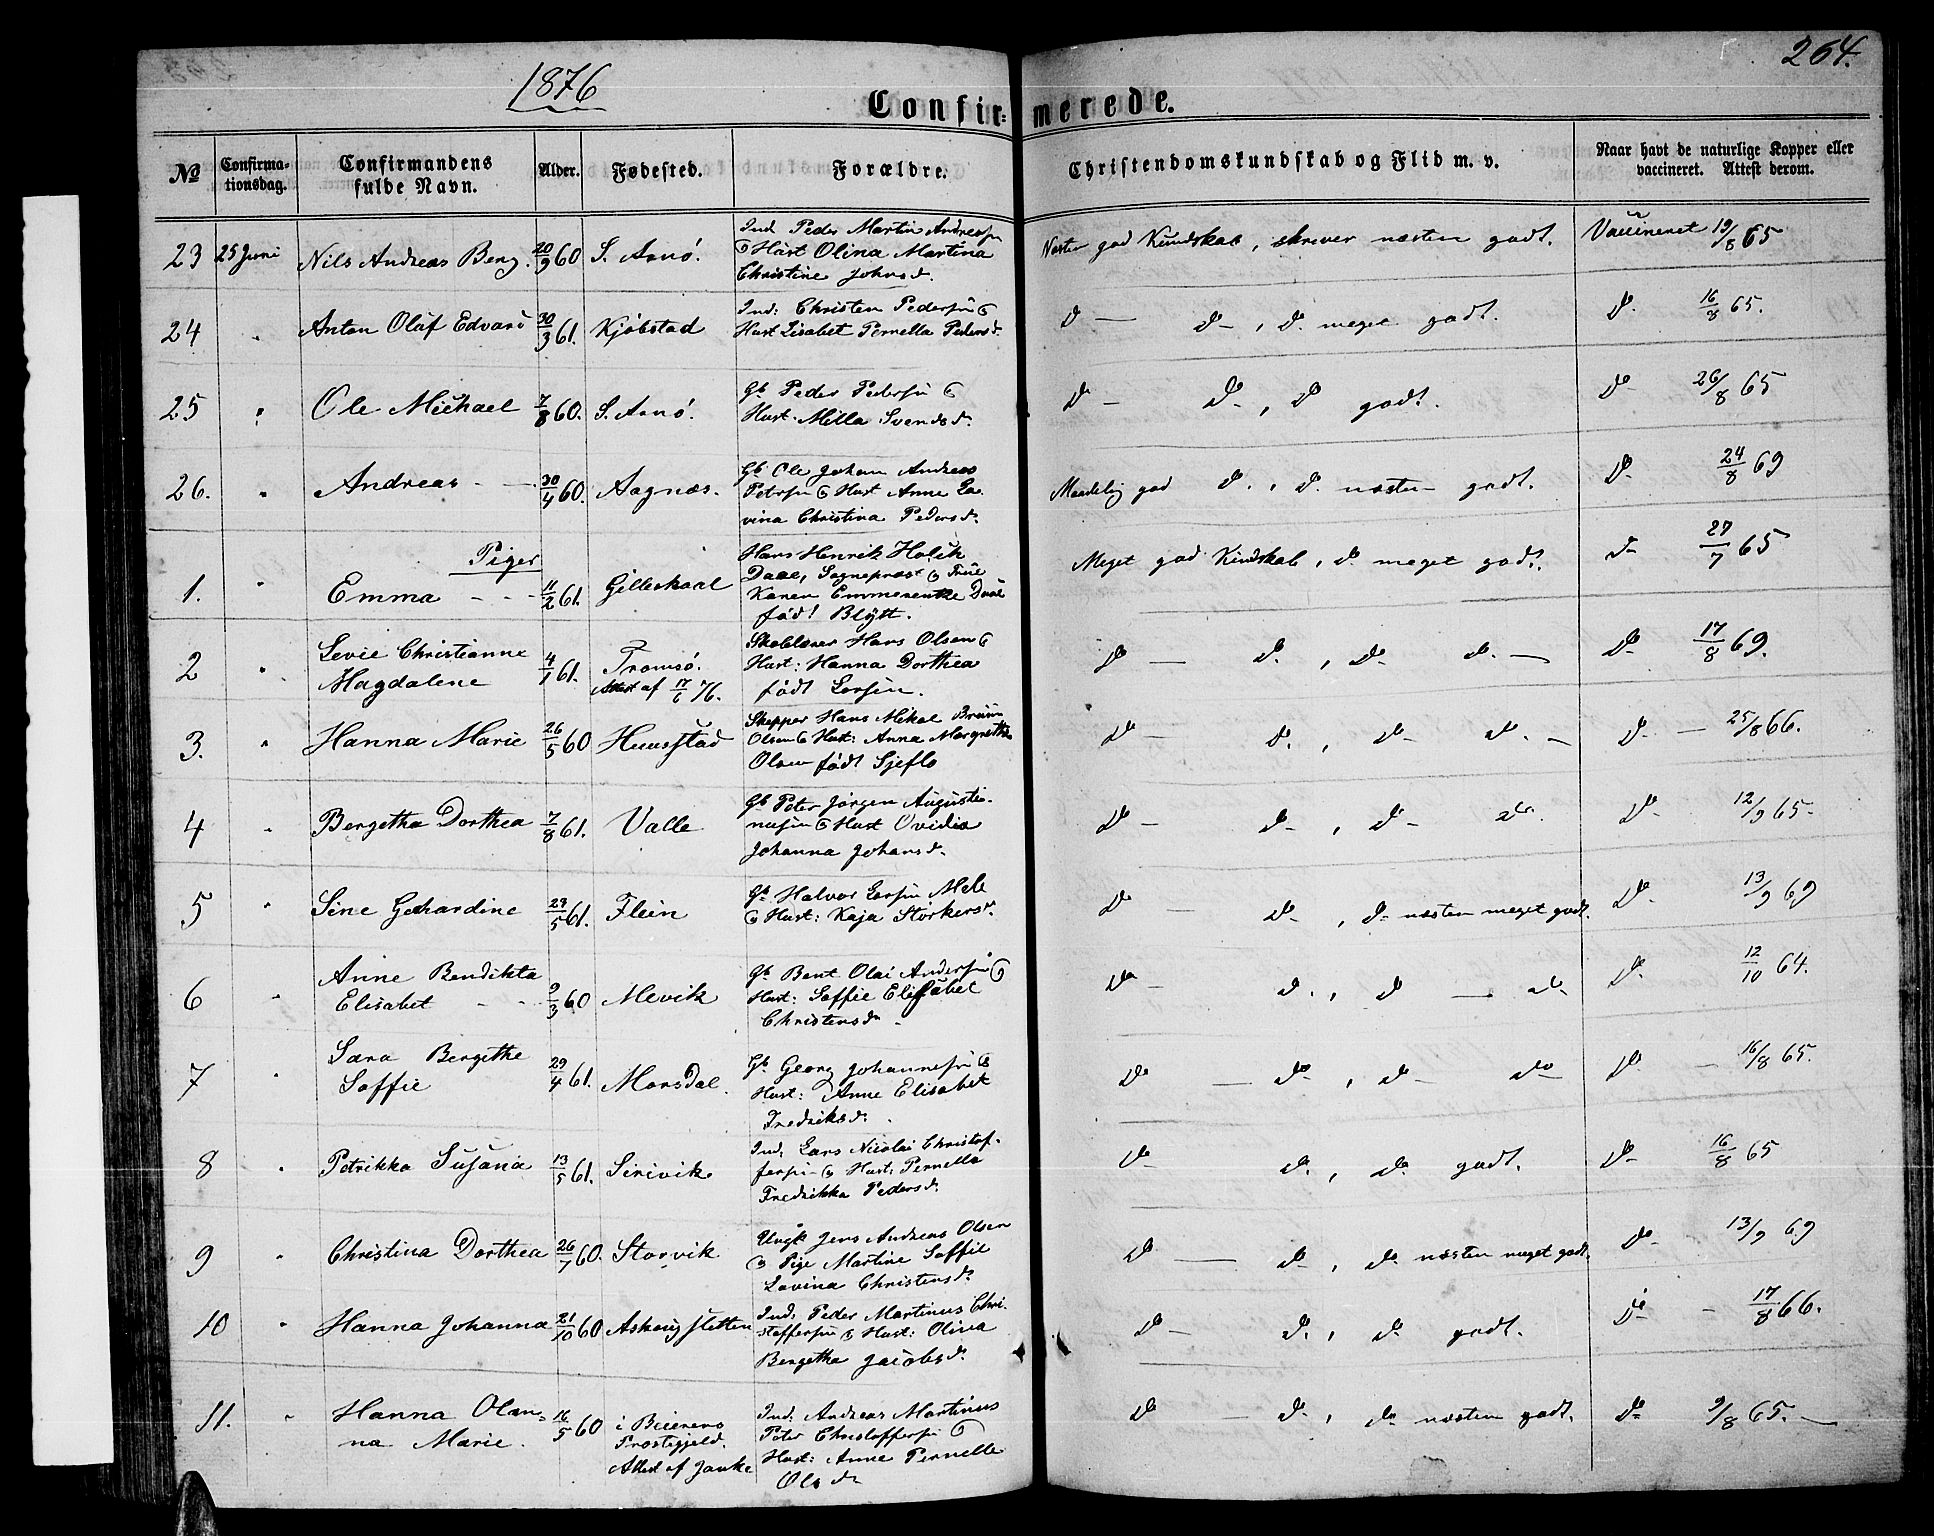 1876
264.
Confirmerede.
№ Confirmationsdag. Confirmandens fulde Navn. Alder. Fødested. Forældre. Christendomskundskab og Flid m. v. Naar havt de naturlige Kopper eller vaccineret. Attest derom.
23 25 Juni Nils Andreas Berg. 20/9 60 S. Arnø. Ind Peder Martin Andreasn
& Hust Olina Martina
Christine Johnsd. Næsten god Kundskab, skriver næsten godt. Vaccineret 19/8 65
24 " Anton Olaf Edvard 30/3 61. Kjøbstad Ind: Christen Pedersn &
Hust Lisabet Pernella Pedersd. Do — Do, Do meget godt. Do 16/8 65.
25 " Ole Michael 7/8 60. S. Arnø. Gb Peder Pedersn &
Hust. Milla Svendsd. Do — Do, Do godt. Do 26/8 65
26. " Andreas 30/4 60. Aagnæs. Gb. Ole Johan Andreas
Petersn & Hust Anne La-
vina Christina Pedersd. Maadelig god Do, Do næsten godt. Do 24/8 69
Piger
1. " Emma 11/2 61. Gilleskaal Hans Henrik Holck
Daae, Sognepræst & Frue
Karen Emmerentze Daae
født Blytt. Meget god Kundskab, Do meget godt. Do 27/7 65
2 " Levie Christianne
Magdalene 4/1 61. Tromsø.
Attest af 17/6 76. Skolelærer Hans Olsen &
Hust: Hanna Dorthea
født Larsen. Do — Do, Do Do — Do 17/8 69.
3. " Hanna Marie 26/5 60 Huusstad Skipper Hans Mikal Bruun
Olsen & Hust: Anna Margrethe
Olsen født Sjeflo Do — Do, Do Do — Do — 25/8 66.
4 " Bergetha Dorthea 7/8 61. Valle Gb Peter Jørgen Augusti-
nusen & Hust Ovidia
Johanna Johansd. Do — Do, Do — Do. Do 12/9 65.
5 " Sine Gerhardine 27/5 61. Flein Gb. Halvor Larsen Mele
& Hust: Kaja Størkersd. Do — Do, Do næsten meget godt. Do 13/9 69
6 " Anne Bendikta
Elisabet 9/3 60 Mevik Gb Bent Olai Andersn &
Hust: Soffie Elisabet
Christensd. Do — Do, Do — Do Do 12/10 64.
7 " Sara Bergethe
Soffie 29/4 61. Morsdal. Gb. Georg Johannesn &
Hust: Anne Elisabet
Fredriksd. Do — Do, Do — Do Do — 16/8 65.
8 " Petrikka Susana 13/5 61. Sirivik Ind: Lars Nicolai Christof-
fersn & Hust: Pernella
Fredrikka Pedersd. Do — Do, Do godt. Do 16/8 65
9 " Christina Dorthea 26/7 60. Storvik Ungk Jens Andreas Olsen
& Pige Martine Soffie
Lovina Christensd. Do — Do, Do næsten meget godt. Do 13/9 69
10 " Hanna Johanna 21/10 60 Ind: Peder Martinus Chri-
stoffersn & Hust: Olina
Bergetha Jacobsd. Do — Do, Do godt. Do — 17/8 66.
11. " Hanna Olan-
na Marie. 16/5 60 i Beierens
Præstegjeld.
Attest af Ind: Andreas Martinus
Peter Christoffersn &
Hust: Anne Pernelle
Olsd. Do — Do, Do næsten godt. Do 9/8 65. —